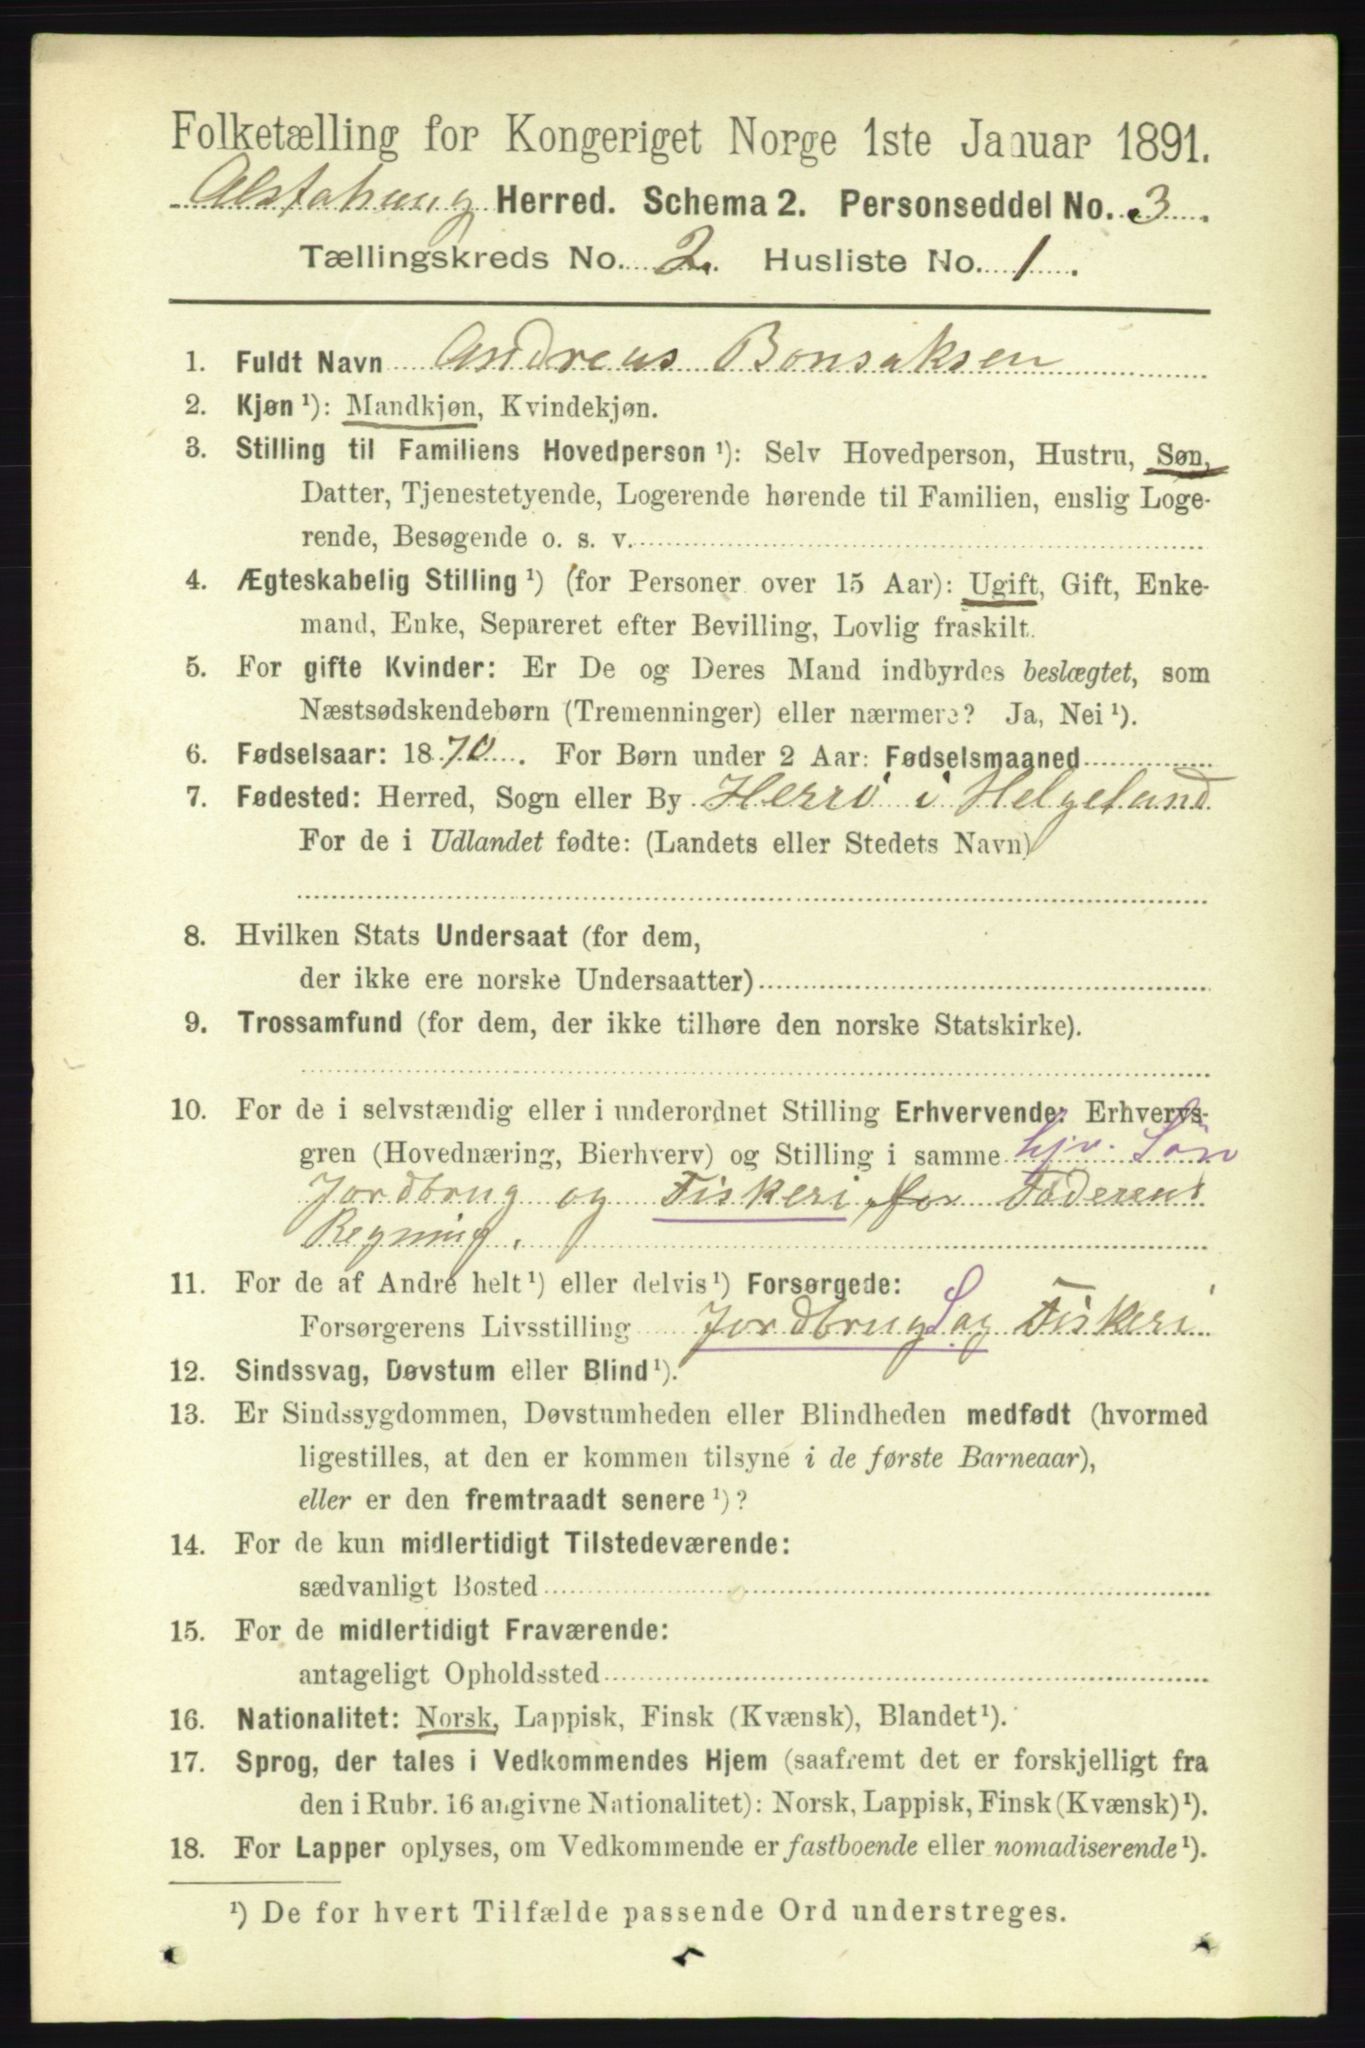 Folketælling for Kongeriget Norge 1ste Januar 1891.
Alstahaug Herred. Schema 2. Personseddel No. 3.
Tællingskreds No. 2. Husliste No. 1.
1. Fuldt Navn Andreas Bonsaksen
2. Kjøn ¹): Mandkjøn, Kvindekjøn.
3. Stilling til Familiens Hovedperson ¹): Selv Hovedperson, Hustru, Søn,
Datter, Tjenestetyende, Logerende hørende til Familien, enslig Loge-
rende, Besøgende o. s. v.
4. Ægteskabelig Stilling ¹) (for Personer over 15 Aar): Ugift, Gift, Enke-
mand, Enke, Separeret efter Bevilling, Lovlig fraskilt.
5. For gifte Kvinder: Er De og Deres Mand indbyrdes beslægtet, som
Næstsødskendebørn (Tremenninger) eller nærmere? Ja, Nei ¹).
6. Fødselsaar: 1870. For Børn under 2 Aar: Fødselsmaaned
7. Fødested: Herred, Sogn eller By Herrö i Helgeland
For de i Udlandet fødte: (Landets eller Stedets Navn)
8. Hvilken Stats Undersaat (for dem,
der ikke ere norske Undersaatter)
9. Trossamfund (for dem, der ikke tilhøre den norske Statskirke).
10. For de i selvstændig eller i underordnet Stilling Erhvervende: Erhvervs-
gren (Hovednæring, Bierhverv) og Stilling i samme hjv. Sön
Jordbrug og Fiskeri for Faderens
Regning.
11. For de af Andre helt ¹) eller delvis ¹) Forsørgede:
Forsørgerens Livsstilling Jordbrug S og Fiskeri
12. Sindssvag, Døvstum eller Blind ¹).
13. Er Sindssygdommen, Døvstumheden eller Blindheden medfødt (hvormed
ligestilles, at den er kommen tilsyne i de første Barneaar),
eller er den fremtraadt senere ¹)?
14. For de kun midlertidigt Tilstedeværende:
sædvanligt Bosted
15. For de midlertidigt Fraværende:
antageligt Opholdssted
16. Nationalitet: Norsk, Lappisk, Finsk (Kvænsk), Blandet ¹).
17. Sprog, der tales i Vedkommendes Hjem (saafremt det er forskjelligt fra
den i Rubr. 16 angivne Nationalitet): Norsk, Lappisk, Finsk (Kvænsk) ¹).
18. For Lapper oplyses, om Vedkommende er fastboende eller nomadiserende ¹).
¹) De for hvert Tilfælde passende Ord understreges.